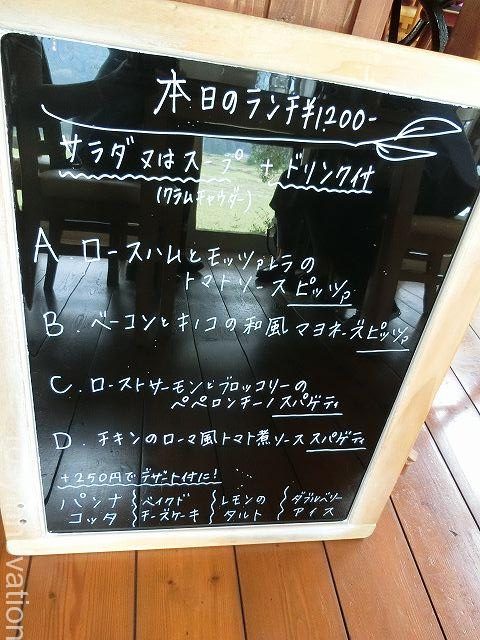 本日のランチ¥1,200-
サラダ又はスープ + ドリンク付
(クラムチャウダー)
A ロースハムとモッツァレラの
トマトソースピッツァ
B. ベーコンとキノコの和風マヨネーズピッツァ
C. ローストサーモンとブロッコリーの
ペペロンチーノスパゲティ
D. チキンのローマ風トマト煮ソーススパゲティ
+250円でデザート付に!
パンナ
コッタ
ベイクド
チーズケーキ
レモンの
タルト
ダブルベリー
アイス
vation